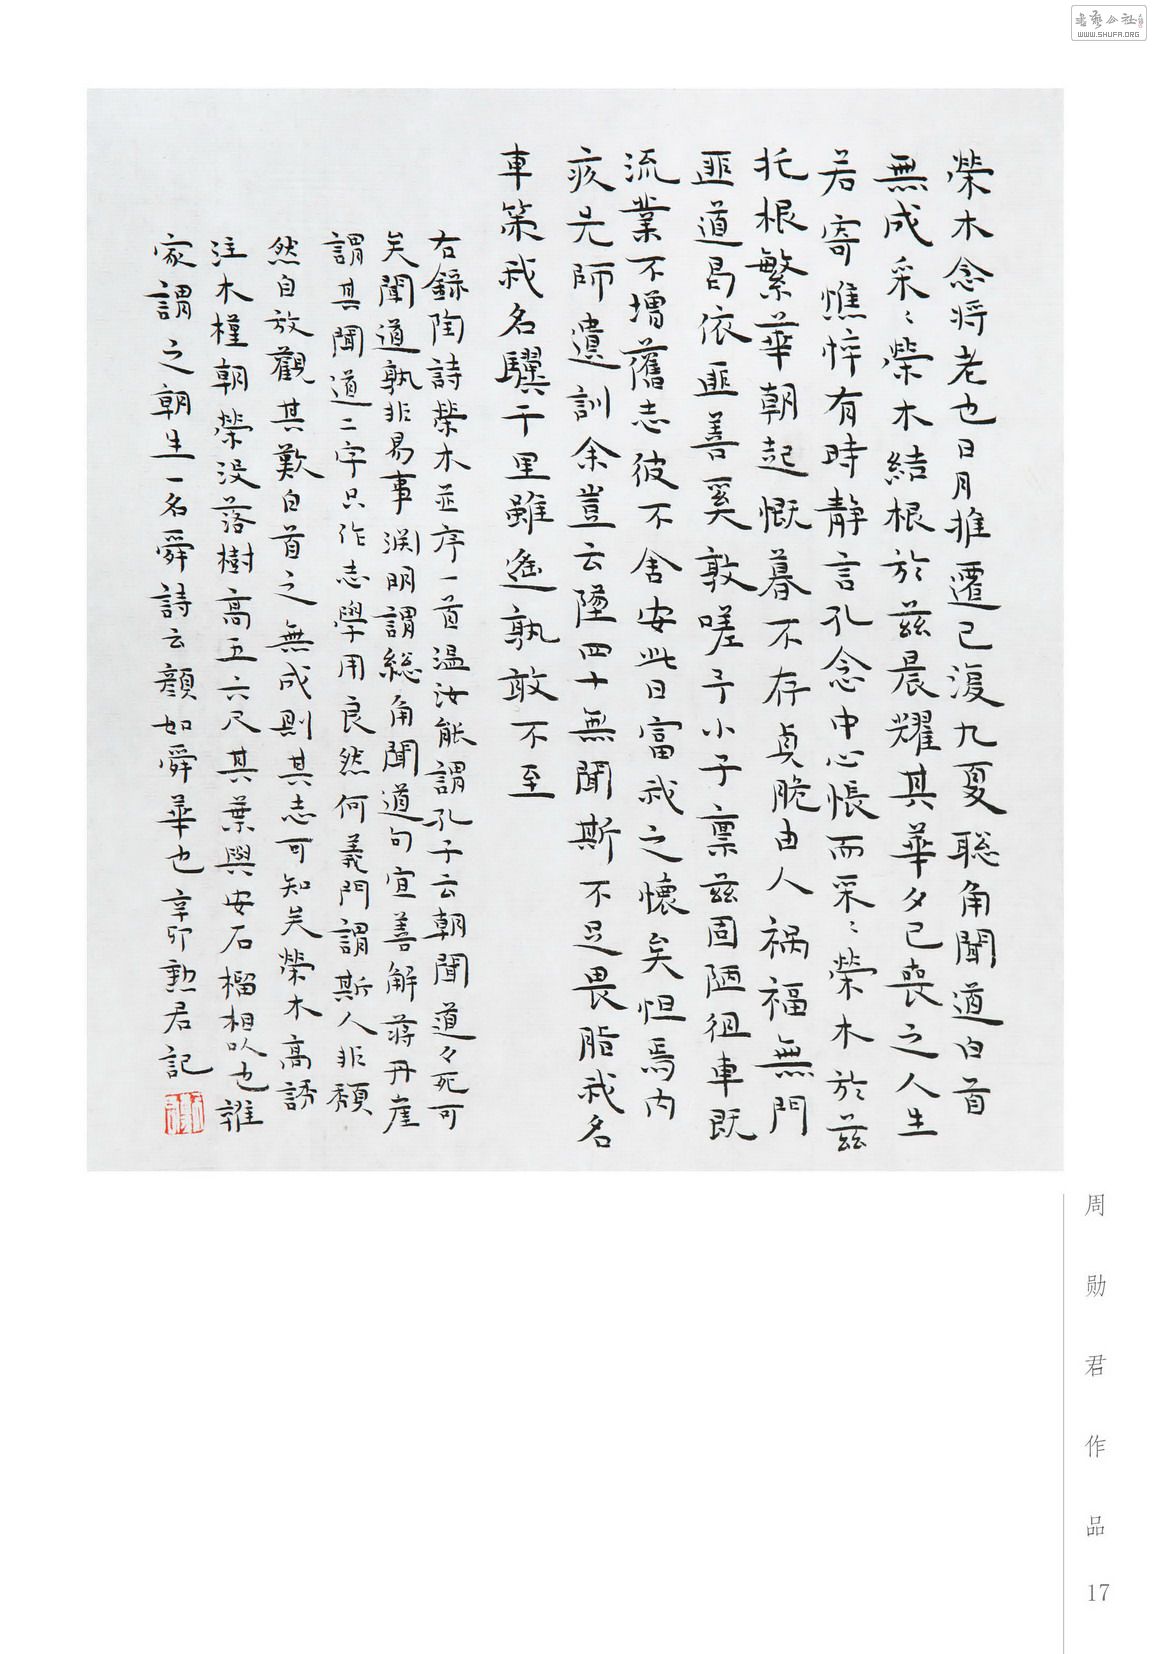 榮木念將老也日月推遷已復九夏聡角聞道白首
無成采〻榮木結根於茲晨耀其華夕已喪之人生
若寄憔悴有時静言孔念中心悵而采〻榮木於茲
托根繁華朝起慨暮不存貞脆由人禍福無門
匪道曷依匪善奚敦嗟予小子禀茲固陋徂車既
流業不增舊志彼不舍安此日富我之懷矣怛焉内
疚先師遺訓余豈云墜四十無聞斯不足畏脂我名
車策我名驥千里雖遙孰敢不至
右錄陶詩榮木並序一首温汝能謂孔子云朝聞道夕死可
矣聞道孰非易事淵明謂総角聞道句宜善解蔣丹崖
謂其聞道二字只作志學用良然何義門謂斯人非頹
然自放觀其歎白首之無成則其志可知矣榮木高誘
注木槿朝榮没落樹高五六尺其葉與安石榴相似也誰
家謂之朝生一名舜詩云顔如舜華也辛卯勲君記
周勋君作品
17
書藝公社
WWW.SHUFA.ORG